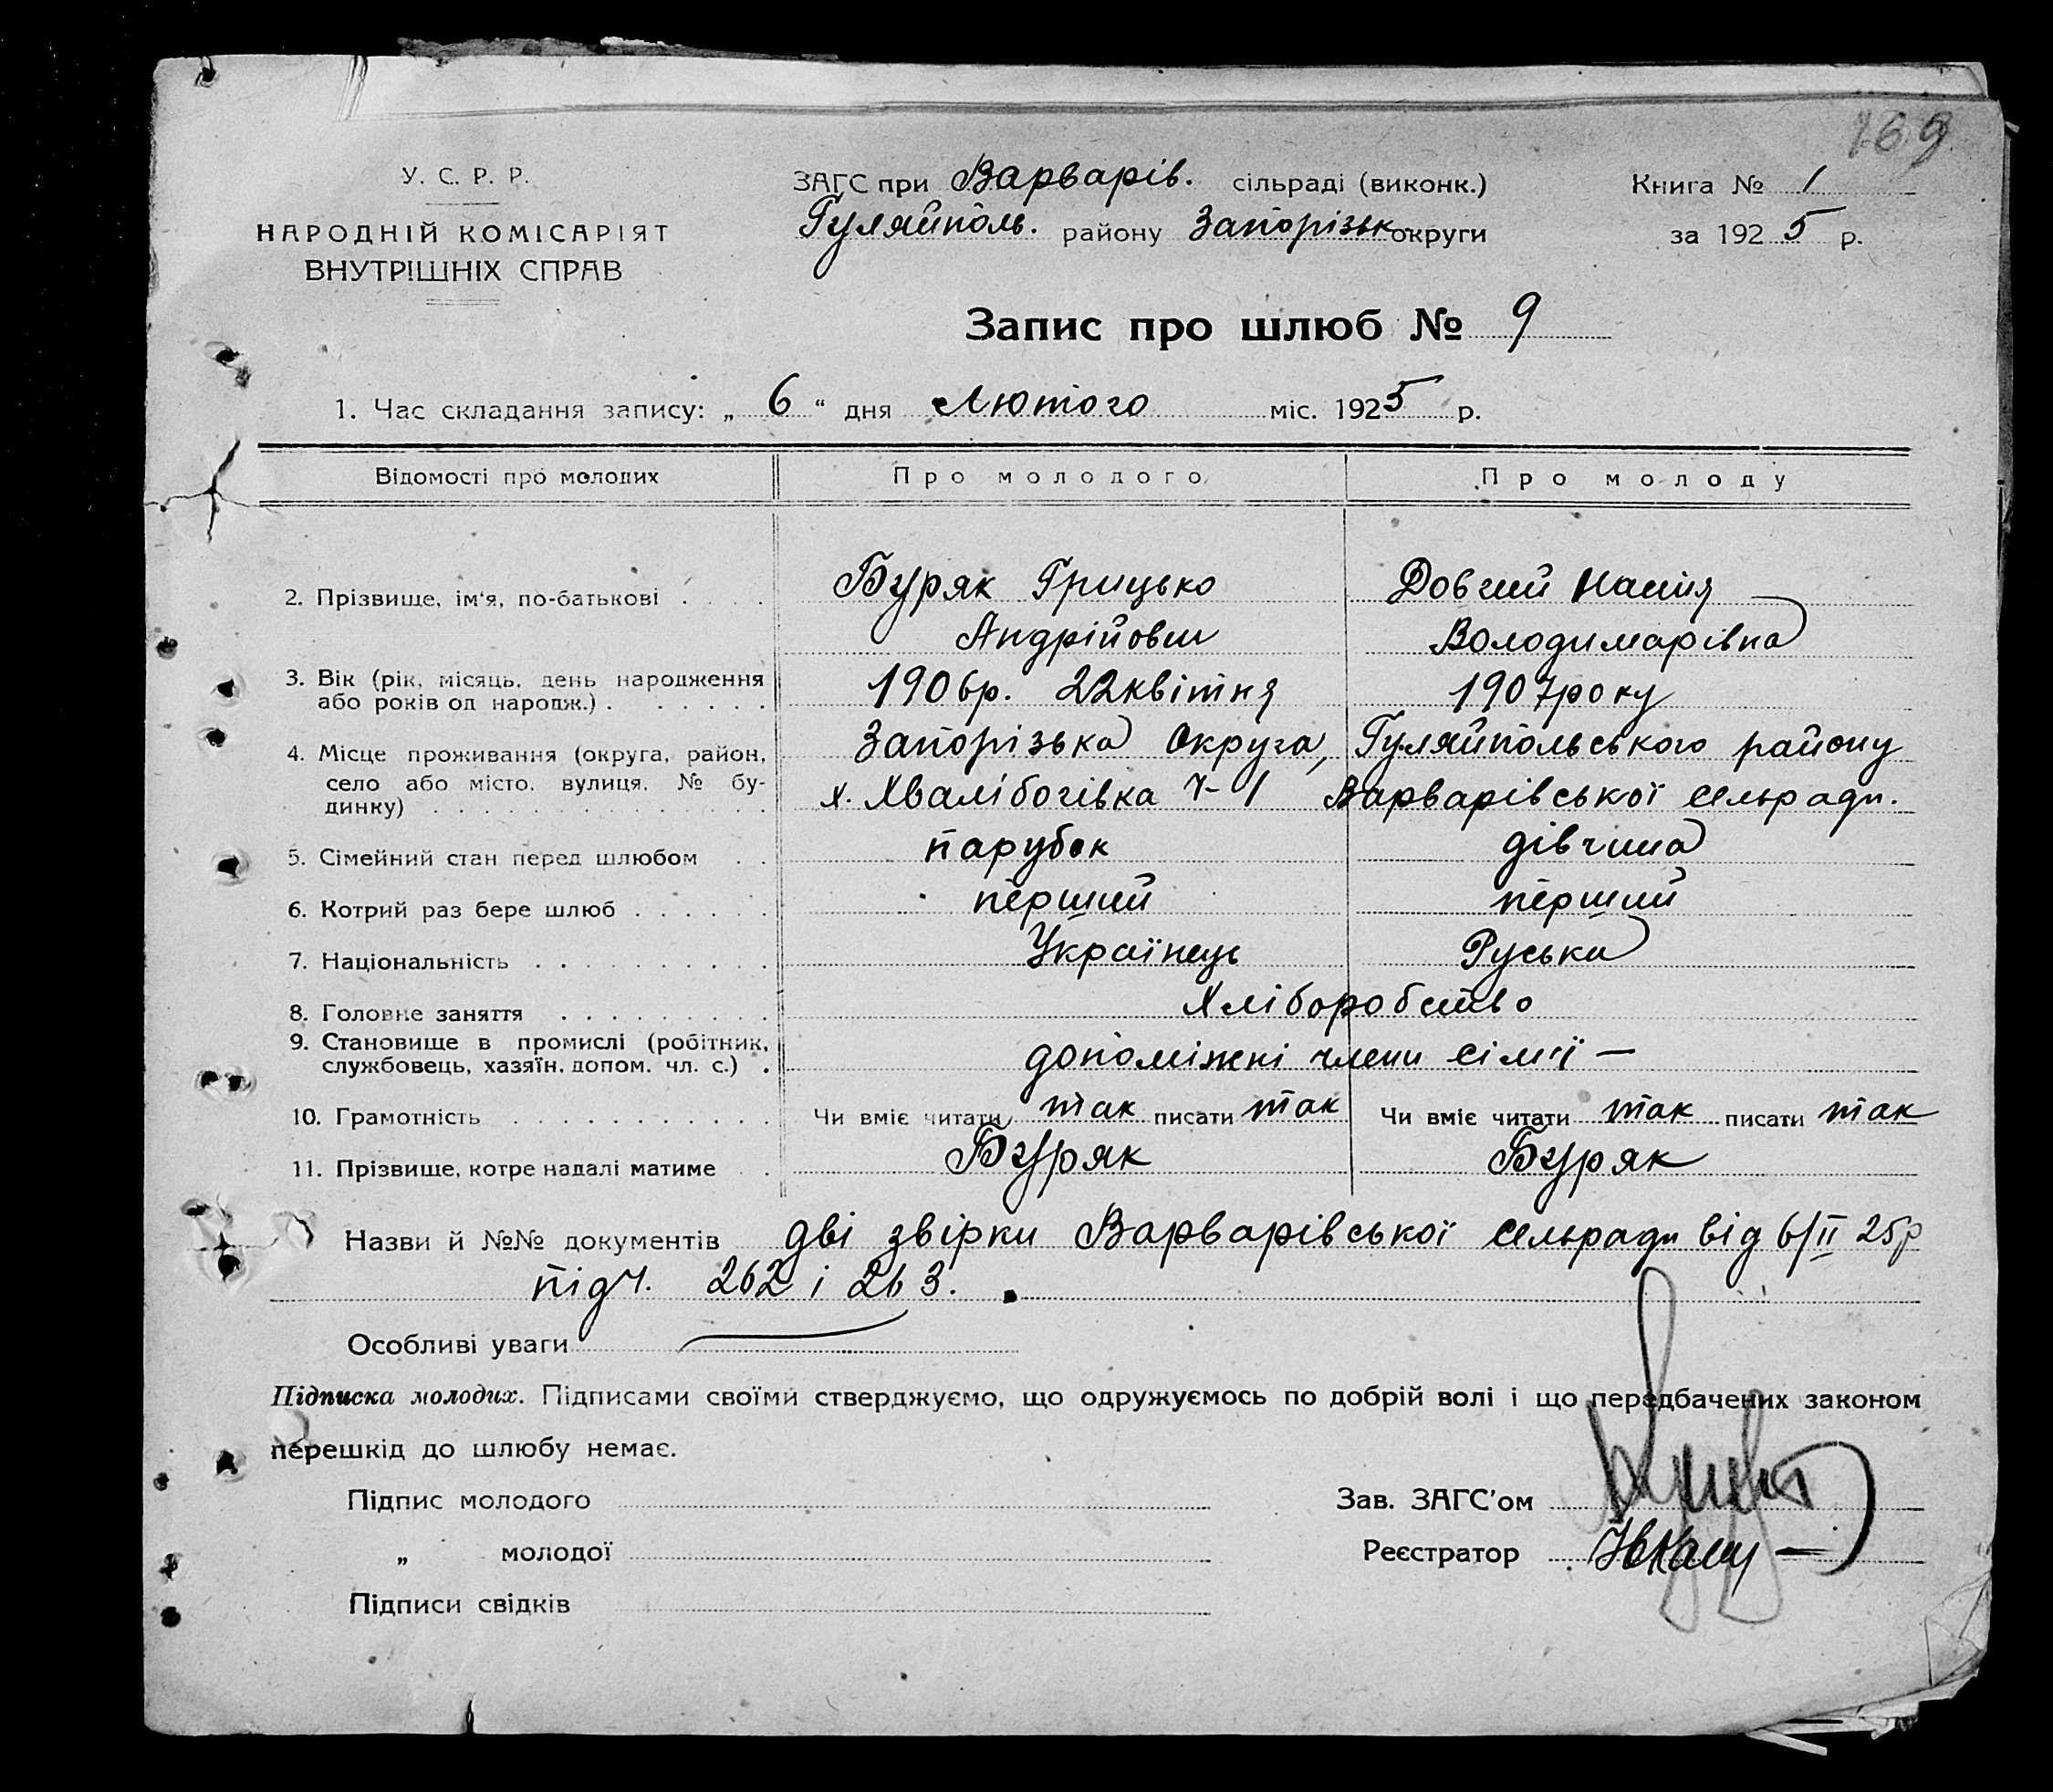 169.
У. С. Р. Р.
НАРОДНІЙ КОМІСАРІЯТ
ВНУТРІШНІХ СПРАВ
ЗАГС при Варварів. сільраді (виконк.)
Гуляйполь. району Запорізьк округи
Книга № 1
за 1925 р.
Запис про шлюб № 9
1. Час складання запису: „ 6 “ дня Лютого міс. 1925 р.
Відомості про молодих Про молодого Про молоду
2. Прізвище, ім‘я, по-батькові Буряк Грицько Довгий
Андрійович Володимарівна
3. Вік (рік, місяць, день народження 1906р. 22 квітня 1907 року
або років од народж.)
4. Місце проживання (округа, район, Запорізька Округа, Гуляйпольського району
село або місто, вулиця, № бу-
динку) х. Хвалібогівка ч-1 Варварівської сельради.
5. Сімейний стан перед шлюбом парубок дівчина
6. Котрий раз бере шлюб перший перший
7. Національність Українець Руська
8. Головне заняття Хліборобство
9. Становище в промислі (робітник,
службовець, хазяїн, допом. чл. с.) допоміжні члени сім'ї —
10. Грамотність Чи вміє читати так писати так Чи вміє читати так писати так
11. Прізвище, котре надалі матиме Буряк Буряк
Назви й №№ документів дві звірки Варварівської сельради від 6/II 25р
під ч. 262 і 263.
Особливі уваги
Підписка молодих. Підписами своїми стверджуємо, що одружуємось по добрій волі і що передбачених законом
перешкід до шлюбу немає.
Підпис молодого
Зав. ЗАГС'ом
„ молодої
Реєстратор
Підписи свідків